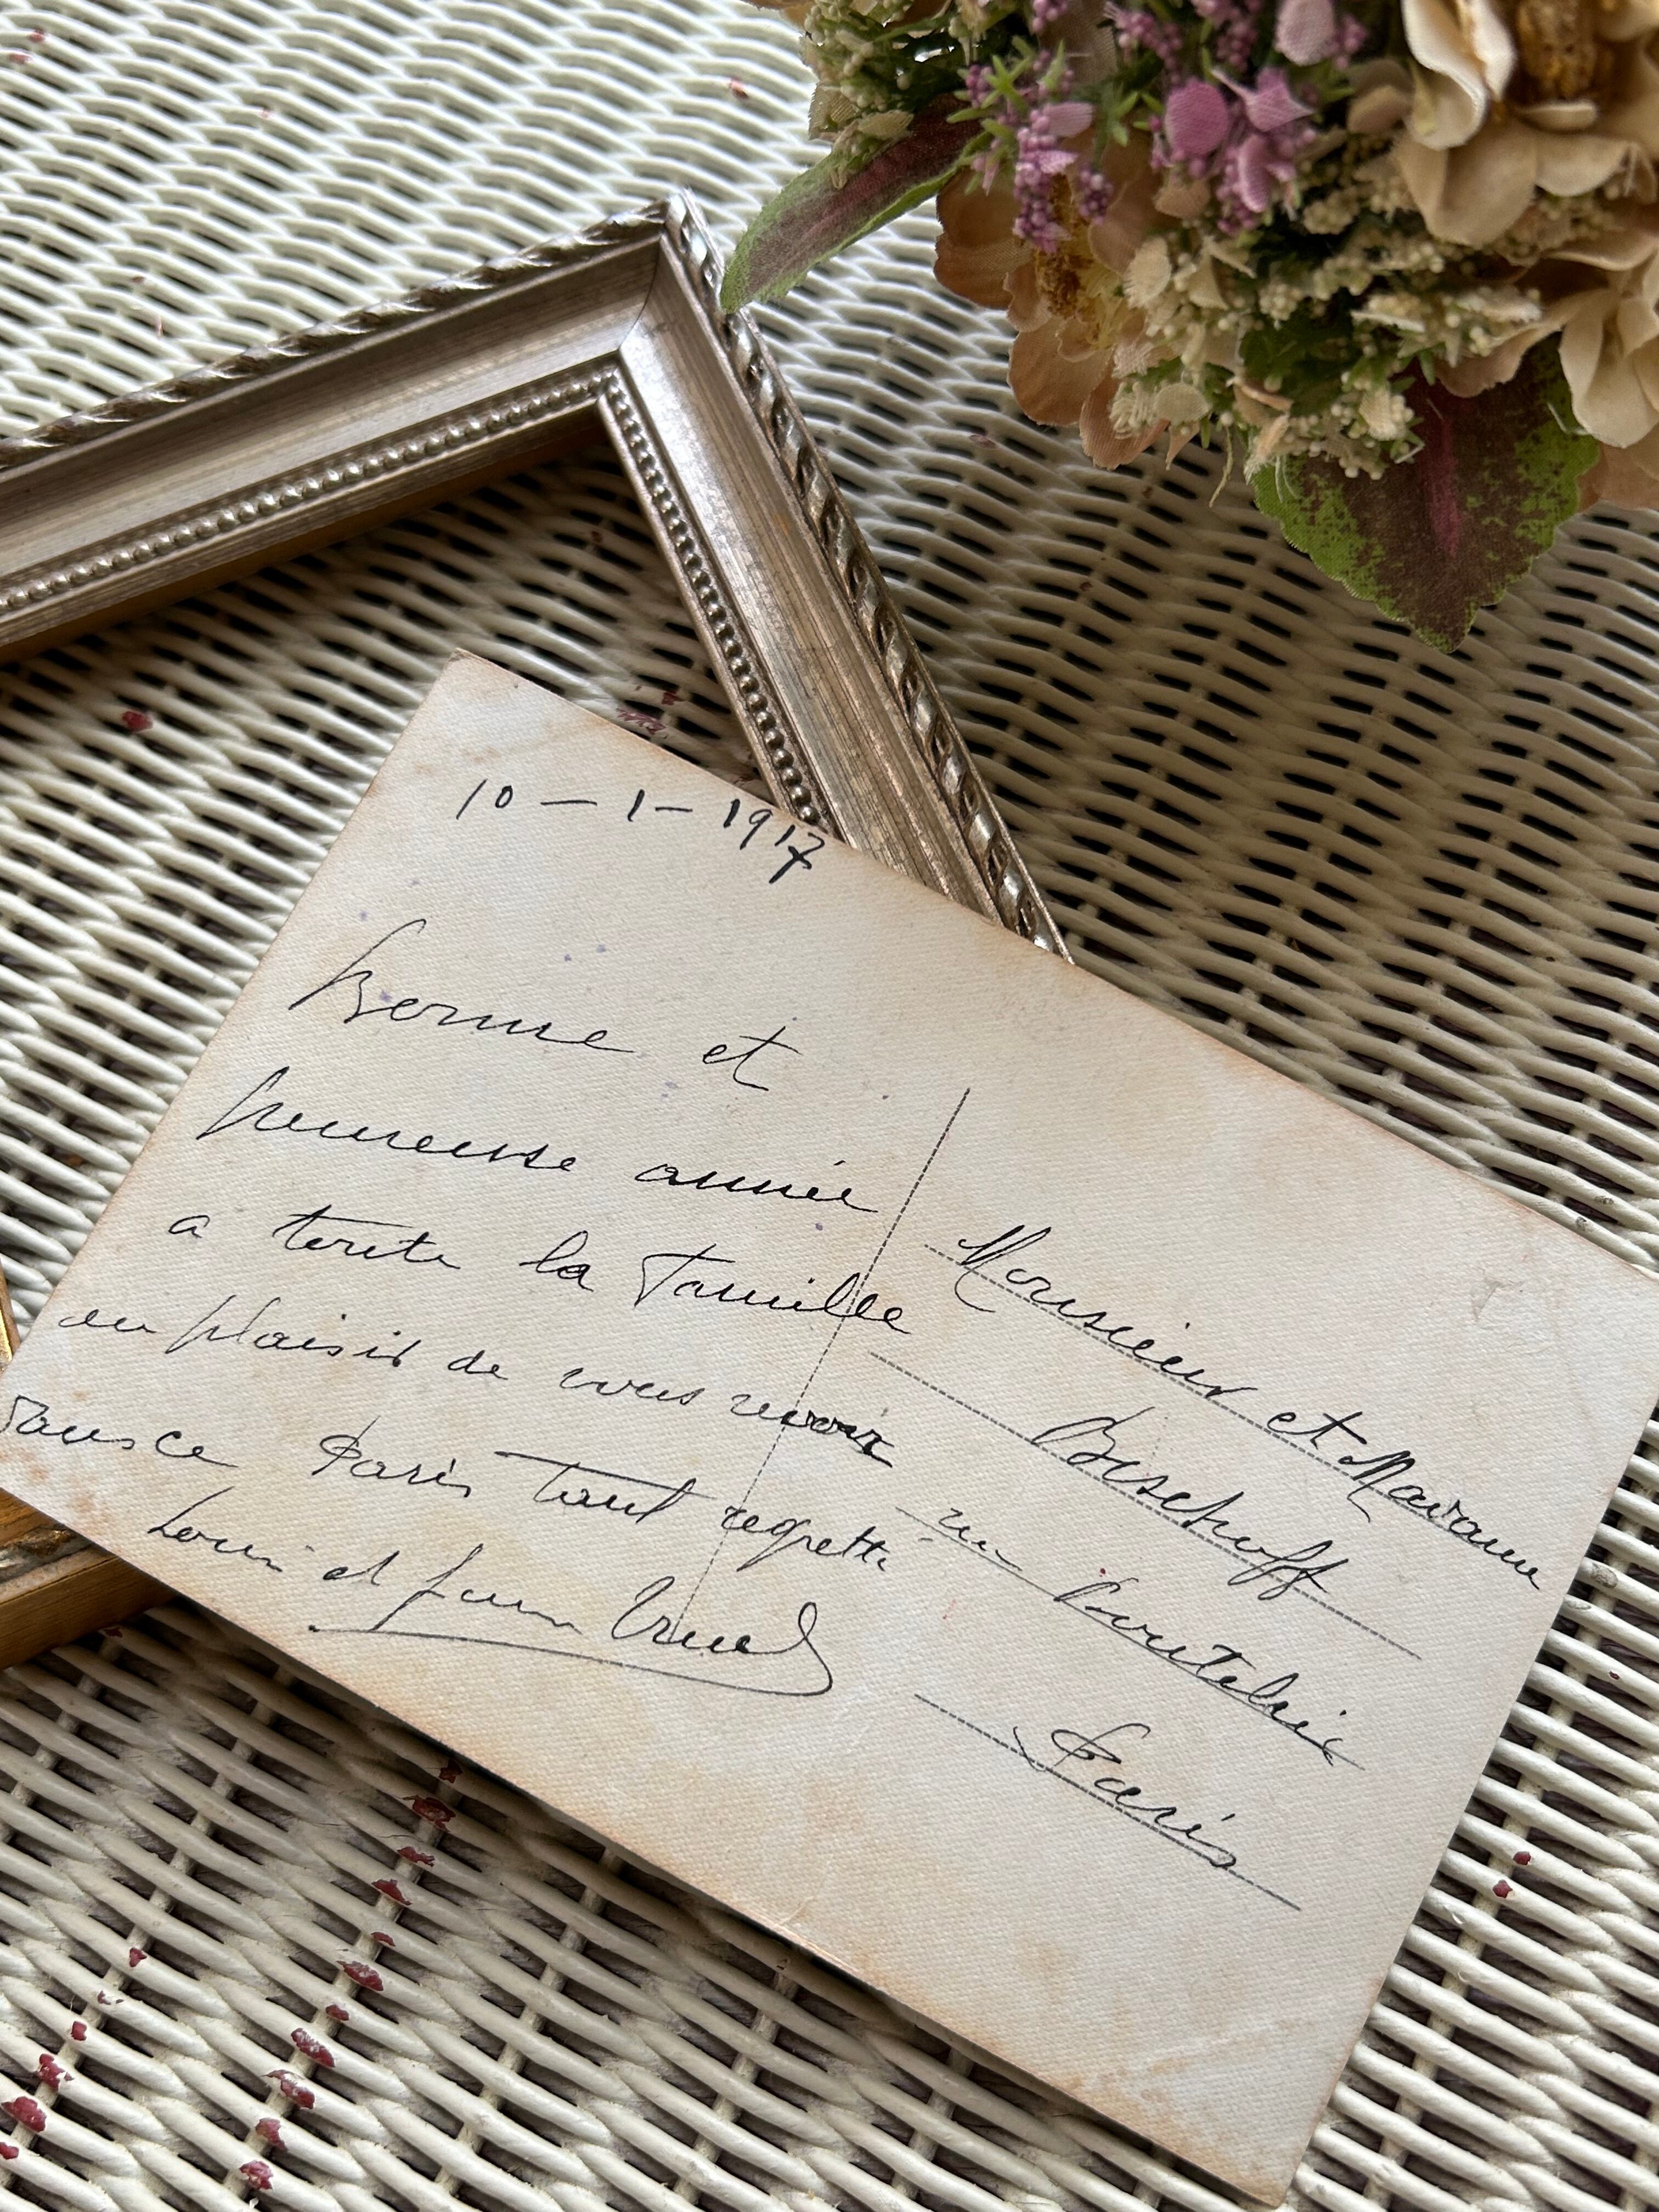 10 - 1 - 1917
bonne et
heureuse année
a toute la Famille
au plaisir de vous revoir
dans ce Paris tant regretté
Louis et
Monsieur et Madame
Bischoff
Paris